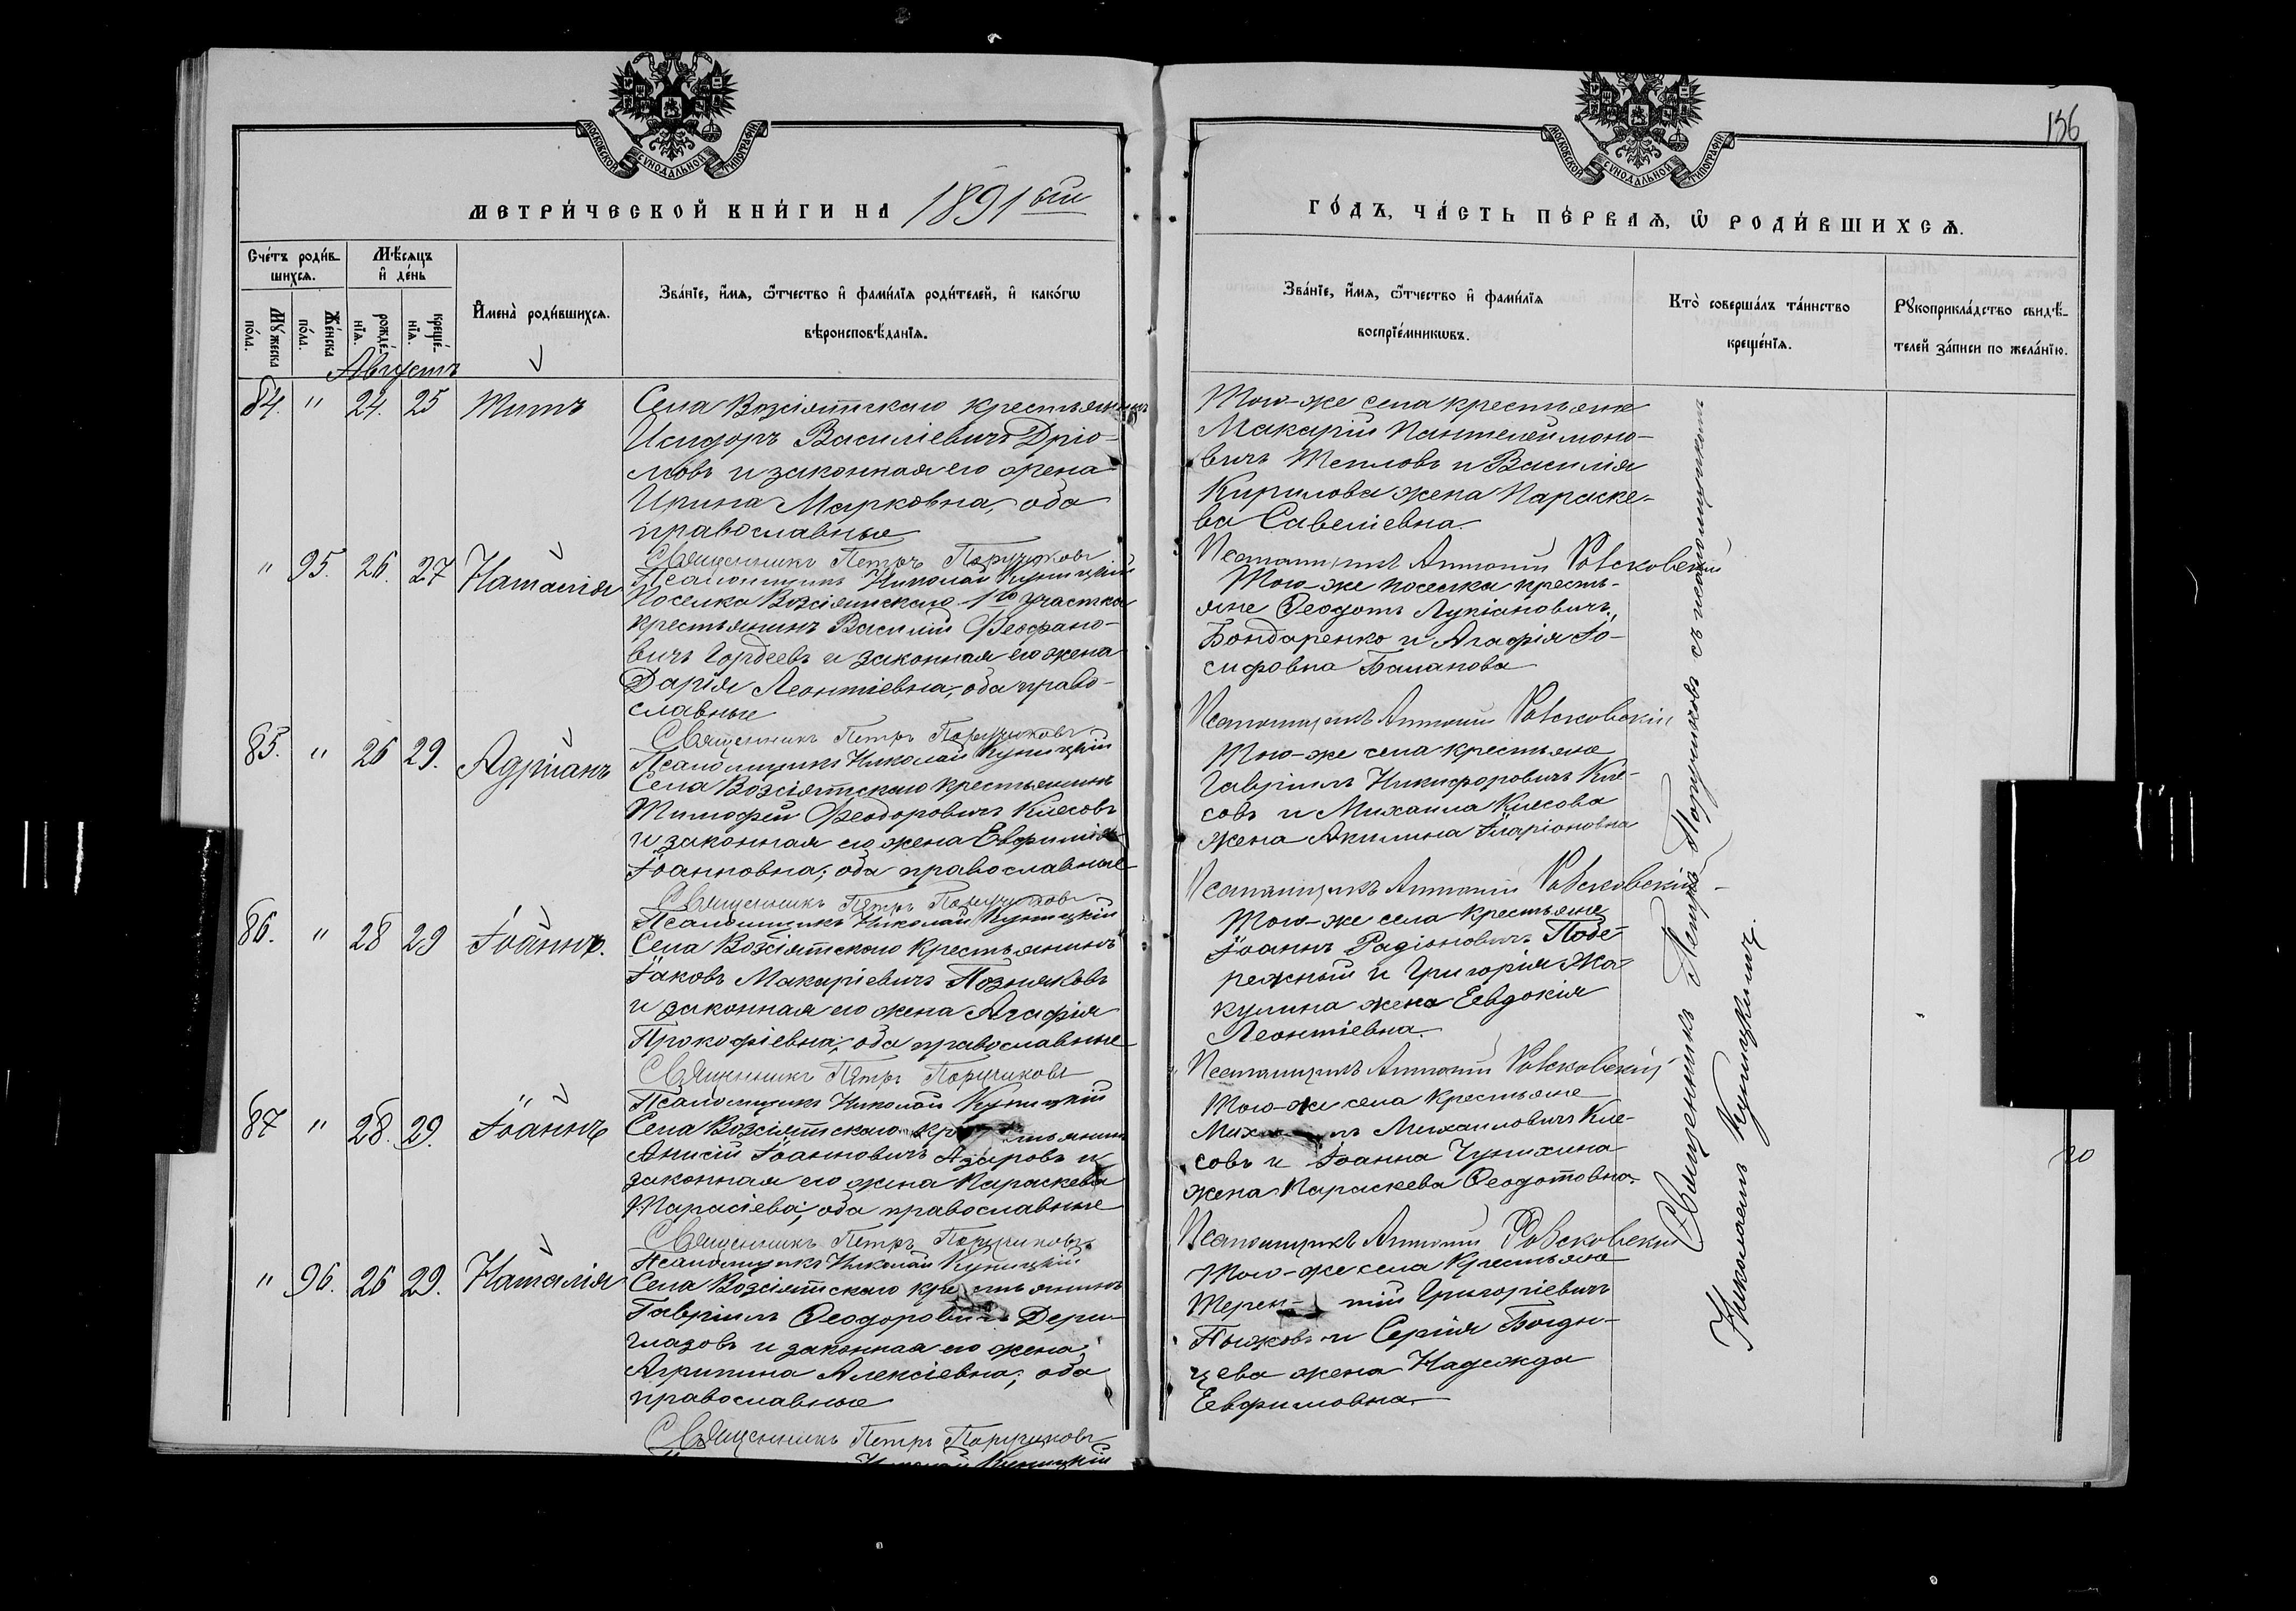 МОСКОВСКОЙ СѴНОДАЛЬНОЙ ТИПОГРАФІИ
МЕТРИ́ЧЕСКОЙ КНИ́ГИ НА 1891 ый
Сче́тъ роди́вшихсѧ.
Мѣ́сяцъ и҆ де́нь
Мꙋ́жеска по́ла.
Же́нска по́ла.
рожде́нїѧ.
креще́нїѧ.
И҆мена̀ роди́вшихсѧ.
Зва́нїе, и҆́мѧ, ѻ҆́тчество и҆ фами́лїѧ роди́телей, и҆ како́гѡ
вѣроисповѣ́данїѧ.
Августъ
84. " 24. 25 Титъ
Села Возсіятскаго крестьянинъ
Исидоръ Василіевичъ Дріо-
мовъ и законная его жена
Ирина Марковна, оба
православные
Священникъ Петръ Поручиковъ
Псаломщикъ Николай Куницкій
" 95. 26. 27 Наталія
Поселка Возсіятскаго 1го участка
крестьянинъ Василій Феофано-
вичъ Гордеевъ и законная его жена
Дарія Леонтіевна, оба право-
славные
Священникъ Петръ Поручиковъ
Псаломщикъ Николай Куницкій
85. " 26 29. Адріанъ
Села Возсіятскаго крестьянинъ
Тимофей Феодоровичъ Клесовъ
и законная его жена Евфимія
Іоанновна; оба православные
Священникъ Петръ Поручиковъ
Псаломщикъ Николай Куницкій
86. " 28 29 Іоаннъ.
Села Возсіятскаго крестьянинъ
Іаковъ Макаріевичъ Позняковъ
и законная его жена Агафія
Прокофіевна; оба православные
Священникъ Петръ Поручиковъ
Псаломщикъ Николай Куницкій
87 " 28. 29. Іоаннъ
Села Возсіятскаго крестьянинъ
Анисій Іоанновичъ Азаровъ и
законная его жена Параскева
Тарасіева; оба православные
Священникъ Петръ Поручиковъ
Псаломщикъ Николай Куницкій
" 96. 26 29. Наталія
Села Возсіятскаго крестьянинъ
Гавріилъ Феодоровичъ Дери-
глазовъ и законная его жена
Агрипина Алексіевна; оба
православные
Священникъ Петръ Поручиковъ
Николай Куницкій
136
МОСКОВСКОЙ СѴНОДАЛЬНОЙ ТИПОГРАФІИ
ГО́ДЪ, ЧА́СТЬ ПЕ́РВАѦ, Ѡ҆ РОДИ́ВШИХСѦ.
Зва́нїе, и҆́мѧ, ѻ҆́тчество и҆ фами́лїѧ
воспрїе́мникѡвъ.
Кто̀ соверша́лъ та́инство
креще́нїѧ.
Рꙋкоприкла́дство свидѣ́-
телей за́писи по жела́нїю.
Того-же села крестьяне
Макарій Пантелеймоно-
вичъ Тепловъ и Василія
Кирилова жена Параске-
ва Савеліевна.
Псаломщикъ Антоній
Того-же поселка кресть-
яне Феодотъ Лукіановичъ
Бондаренко и Агафія Іо-
сифовна Баланова
Псаломщикъ Антоній
Того-же села крестьяне
Гавріилъ Никифоровичъ Кле-
совъ и Михаила Клесова
жена Акилина Іларіоновна
Псаломщикъ Антоній
Того-же села крестьяне
Іоаннъ Радіоновичъ Побе-
режный и Григорія Жа-
кулина жена Евдокія
Леонтіевна.
Псаломщикъ Антоній
Того-же села крестьяне
Михаилъ Михаиловичъ Кле-
совъ и Іоанна Чунихина
жена Параскева Феодотовна.
Псаломщикъ Антоній
Того-же села крестьяне
Терен-тій Григоріевичъ
Пыжовъ и Сергія Богда-
цева жена Надежда
Евфимовна
Священникъ Петръ Поручиковъ съ псаломщикомъ
Николаемъ Куницкимъ.
20